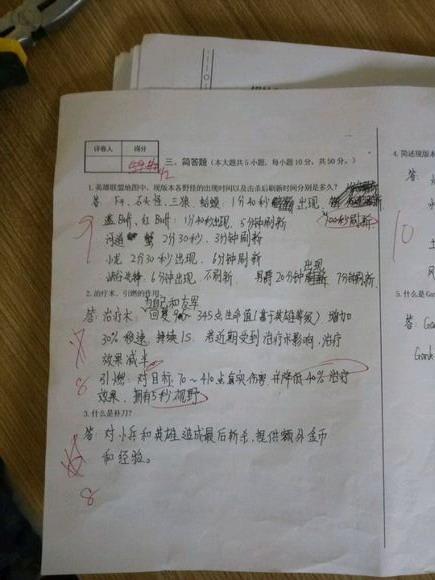 评卷人 得分
三、简答题（本大题共5小题，每小题10分，共50分。）
1.英雄联盟地图中，现版本各野怪的出现时间以及击杀后刷新时间分别是多久？
答 F4、石头怪、三狼、蛤蟆：1分40秒 出现，
100秒刷新
蓝Buff、红Buff：1分40秒出现，5分钟刷新
9
河道 蟹 2分30秒，3分钟刷新
小龙 2分30秒出现，6分钟刷新
出现
峡谷先锋，6分钟出现 不刷新 男爵20分钟 7分钟刷新
2.治疗术、引燃的作用
与自己和友军
答 治疗术：回复90~345点生命值（基于英雄等级）增加
30%移速，持续1S 若近期受到治疗术影响，治疗
效果减半
8
引燃：对目标70~410点真实伤害并降低40%治疗
效果，拥有5秒视野
3.什么是补刀？
答：对小兵和英雄造成最后斩杀，提供额外金币
和经验。
8
4.简述现版本
答：
10
5.什么是Ga
答：Gan
Gank